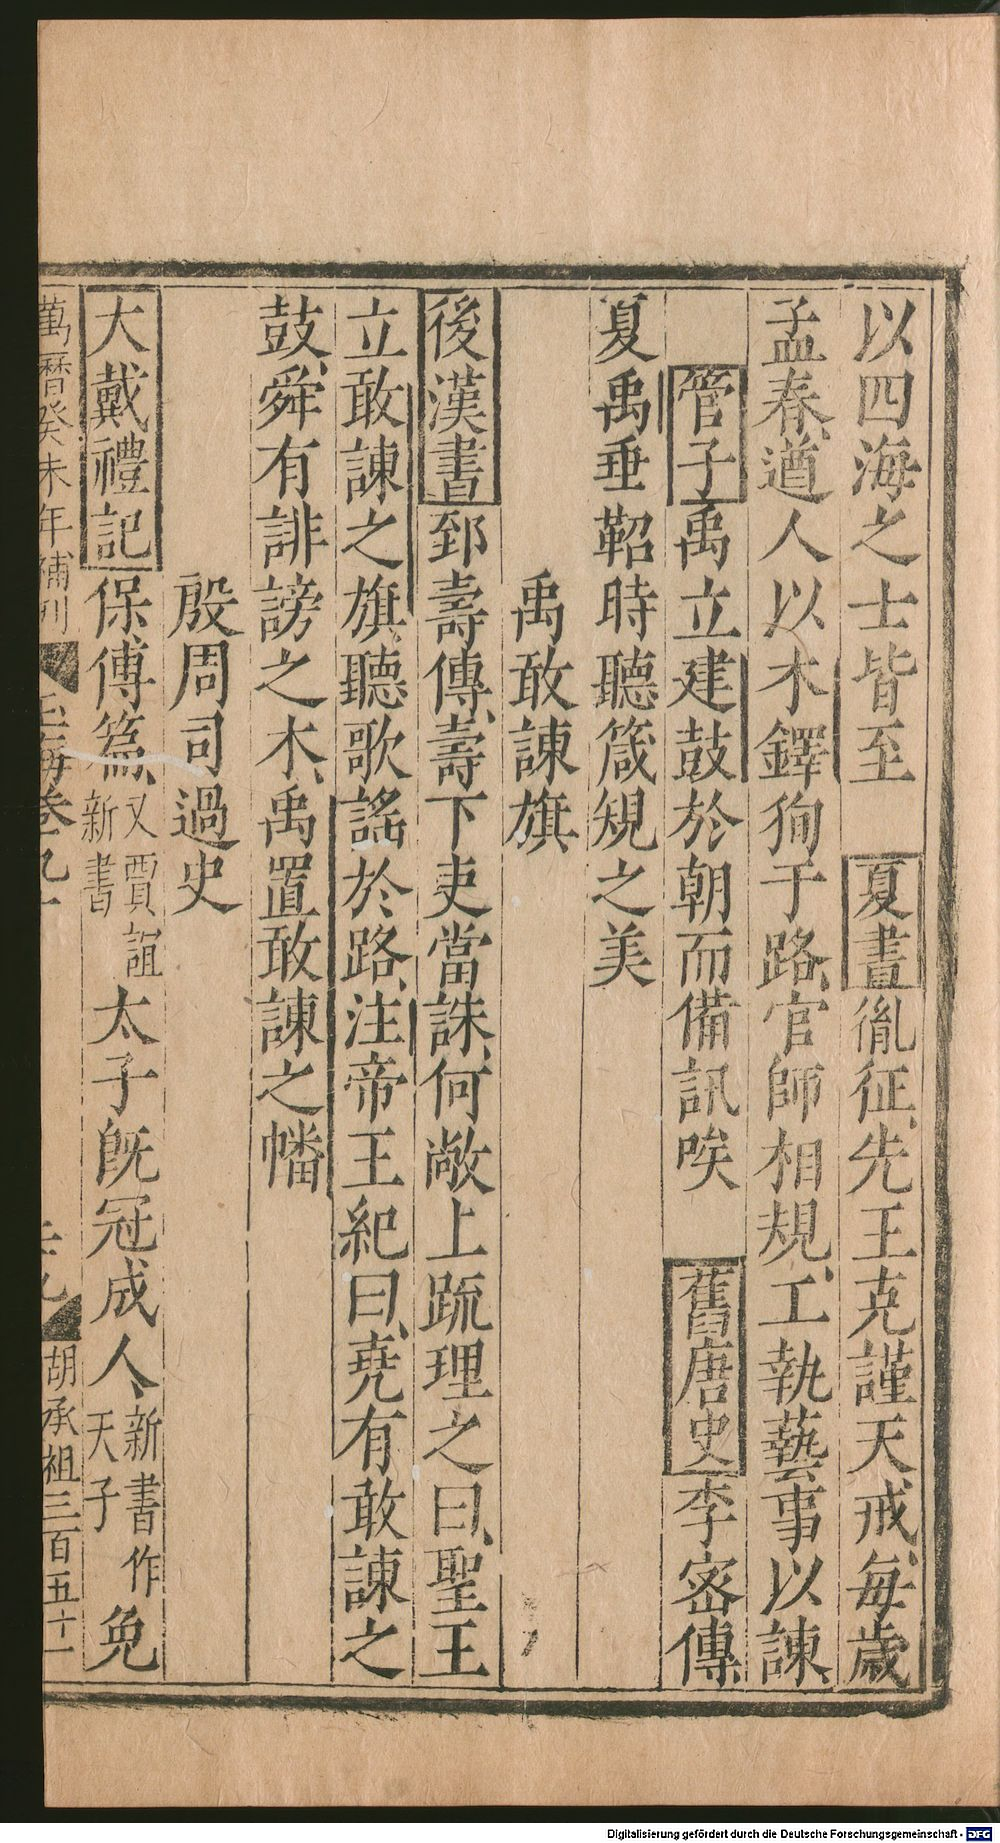 以四海之士皆至　夏書胤征、先王克謹天戒、每歲
孟春、遒人以木鐸徇于路、官師相規、工執藝事以諫、
管子禹立建鼓於朝而備訊唉　舊唐史李密傳、
夏禹垂鞀時聽箴規之美
禹敢諫旗
後漢書郅壽傳、壽下吏當誅、何敞上疏理之曰、聖王
立敢諫之旗、聽歌謠於路、注帝王紀曰、堯有敢諫之
鼓、舜有誹謗之木、禹置敢諫之幡
殷周司過史
大戴禮記保傅篇、又賈誼新書太子旣冠成人、新書作天子免
萬曆癸未年補刊　玉海卷九十　胡承祖三百五十一
Digitalisierung gefördert durch die Deutsche Forschungsgemeinschaft - DFG